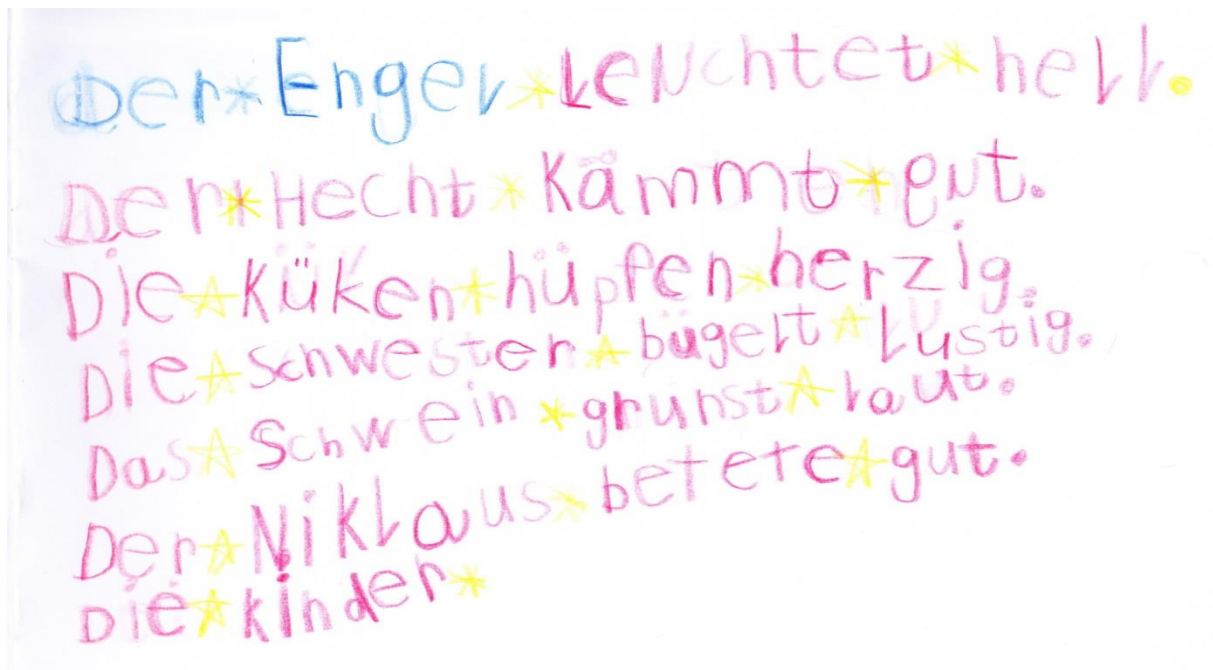 Der Engel leuchtet hell.
Der Hecht Kämmt gut.
Die Küken hüpfen herzig.
Die Schwester bügelt lustig.
Das Schwein grunst laut.
Der Niklaus betete gut.
Die kinder